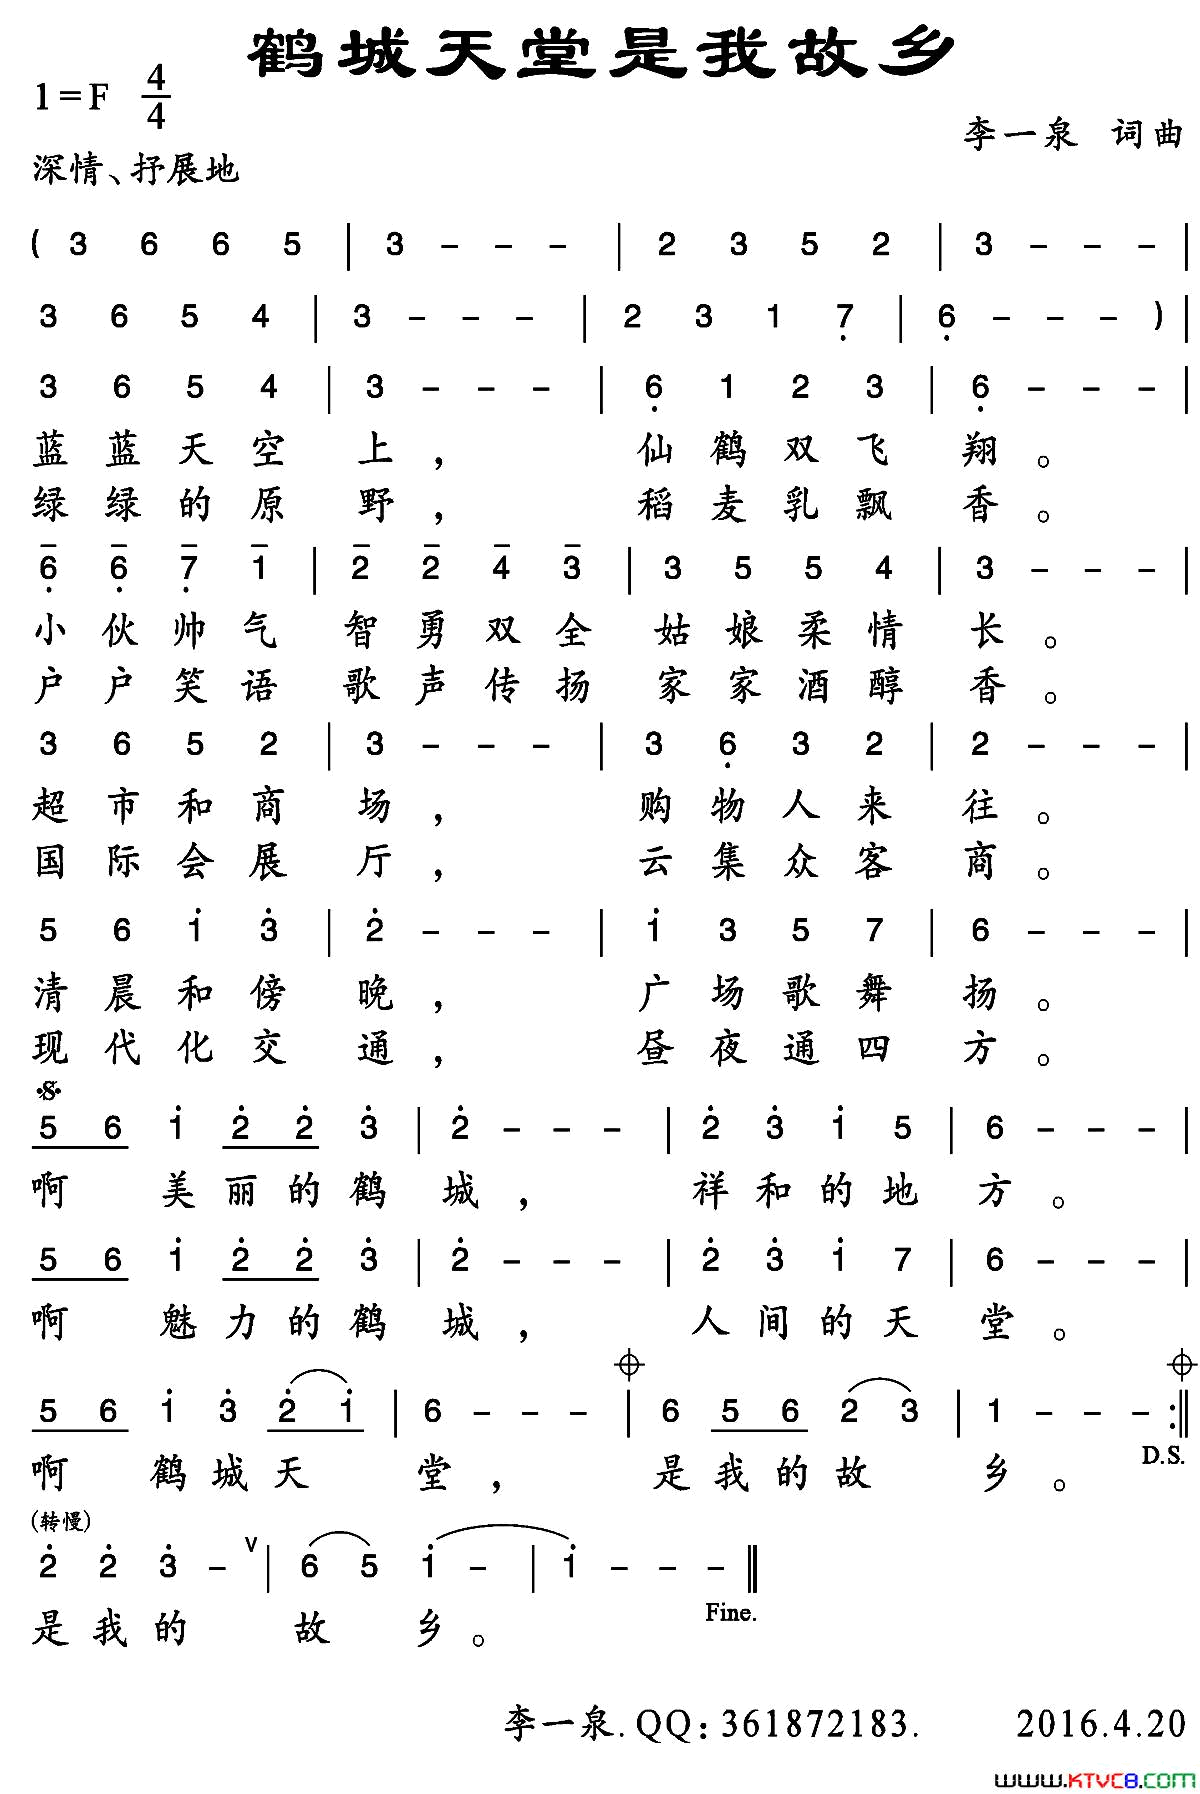 鹤城天堂是我故乡
1=F 4/4
李一泉 词曲
深情、抒展地
( 3 6 6 5 | 3 - - - | 2 3 5 2 | 3 - - - |
3 6 5 4 | 3 - - - | 2 3 1 7̣ | 6̣ - - - ) |
3 6 5 4 | 3 - - - | 6̣ 1 2 3 | 6̣ - - - |
蓝蓝天空上, 仙鹤双飞翔。
绿绿的原野, 稻麦乳飘香。
6̣ 6̣ 7̣ 1 | 2 2 4 3 | 3 5 5 4 | 3 - - - |
小伙帅气 智勇双全 姑娘柔情长。
户户笑语 歌声传扬 家家酒醇香。
3 6 5 2 | 3 - - - | 3 6̣ 3 2 | 2 - - - |
超市和商场, 购物人来往。
国际会展厅, 云集众客商。
5 6 1̇ 3̇ | 2̇ - - - | 1̇ 3 5 7 | 6 - - - |
清晨和傍晚, 广场歌舞扬。
现代化交通, 昼夜通四方。
𝄋
5 6 1̇ 2̇ 2̇ 3̇ | 2̇ - - - | 2̇ 3̇ 1̇ 5 | 6 - - - |
啊 美丽的鹤城, 祥和的地方。
5 6 1̇ 2̇ 2̇ 3̇ | 2̇ - - - | 2̇ 3̇ 1̇ 7 | 6 - - - |
啊 魅力的鹤城, 人间的天堂。
𝄌 𝄌
5 6 1̇ 3̇ 2̇ 1̇ | 6 - - - | 6 5 6 2 3 | 1 - - - :‖
D.S.
啊 鹤城天堂, 是我的故乡。
(转慢)
2̇ 2̇ 3̇ - ∨ | 6 5 1̇ - | 1̇ - - - ‖
Fine.
是我的 故乡。
李一泉.QQ:361872183. 2016.4.20
www.KTVC8.com